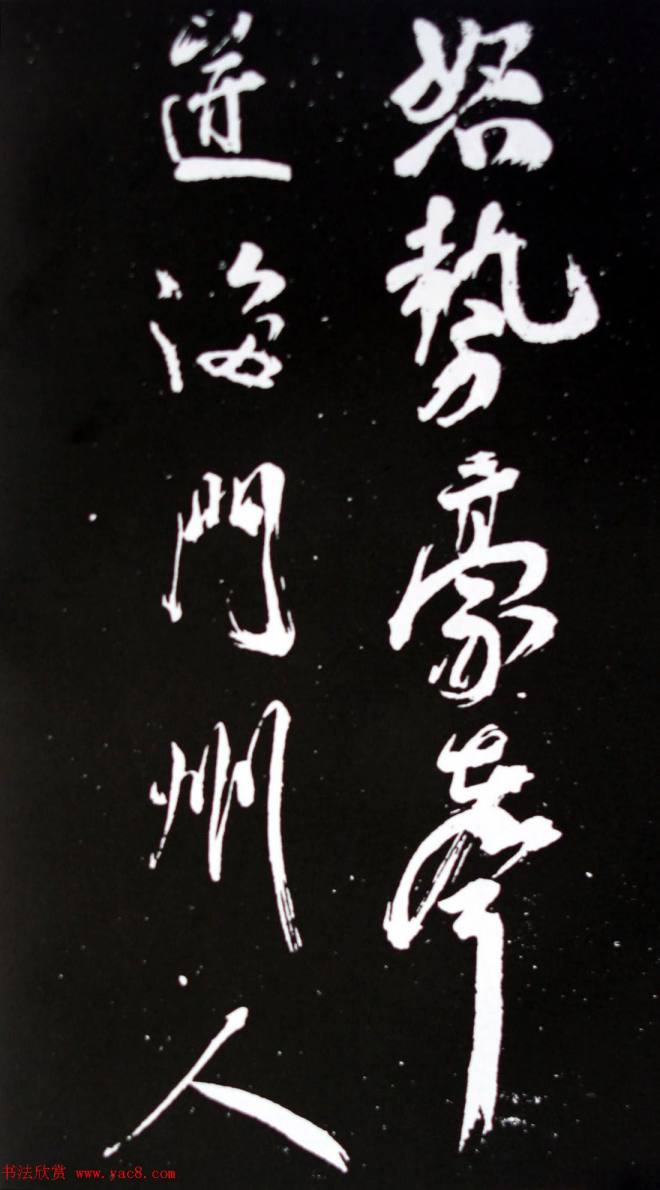 怒勢豪聲
迸海門州人
书法欣赏 www.yac8.com